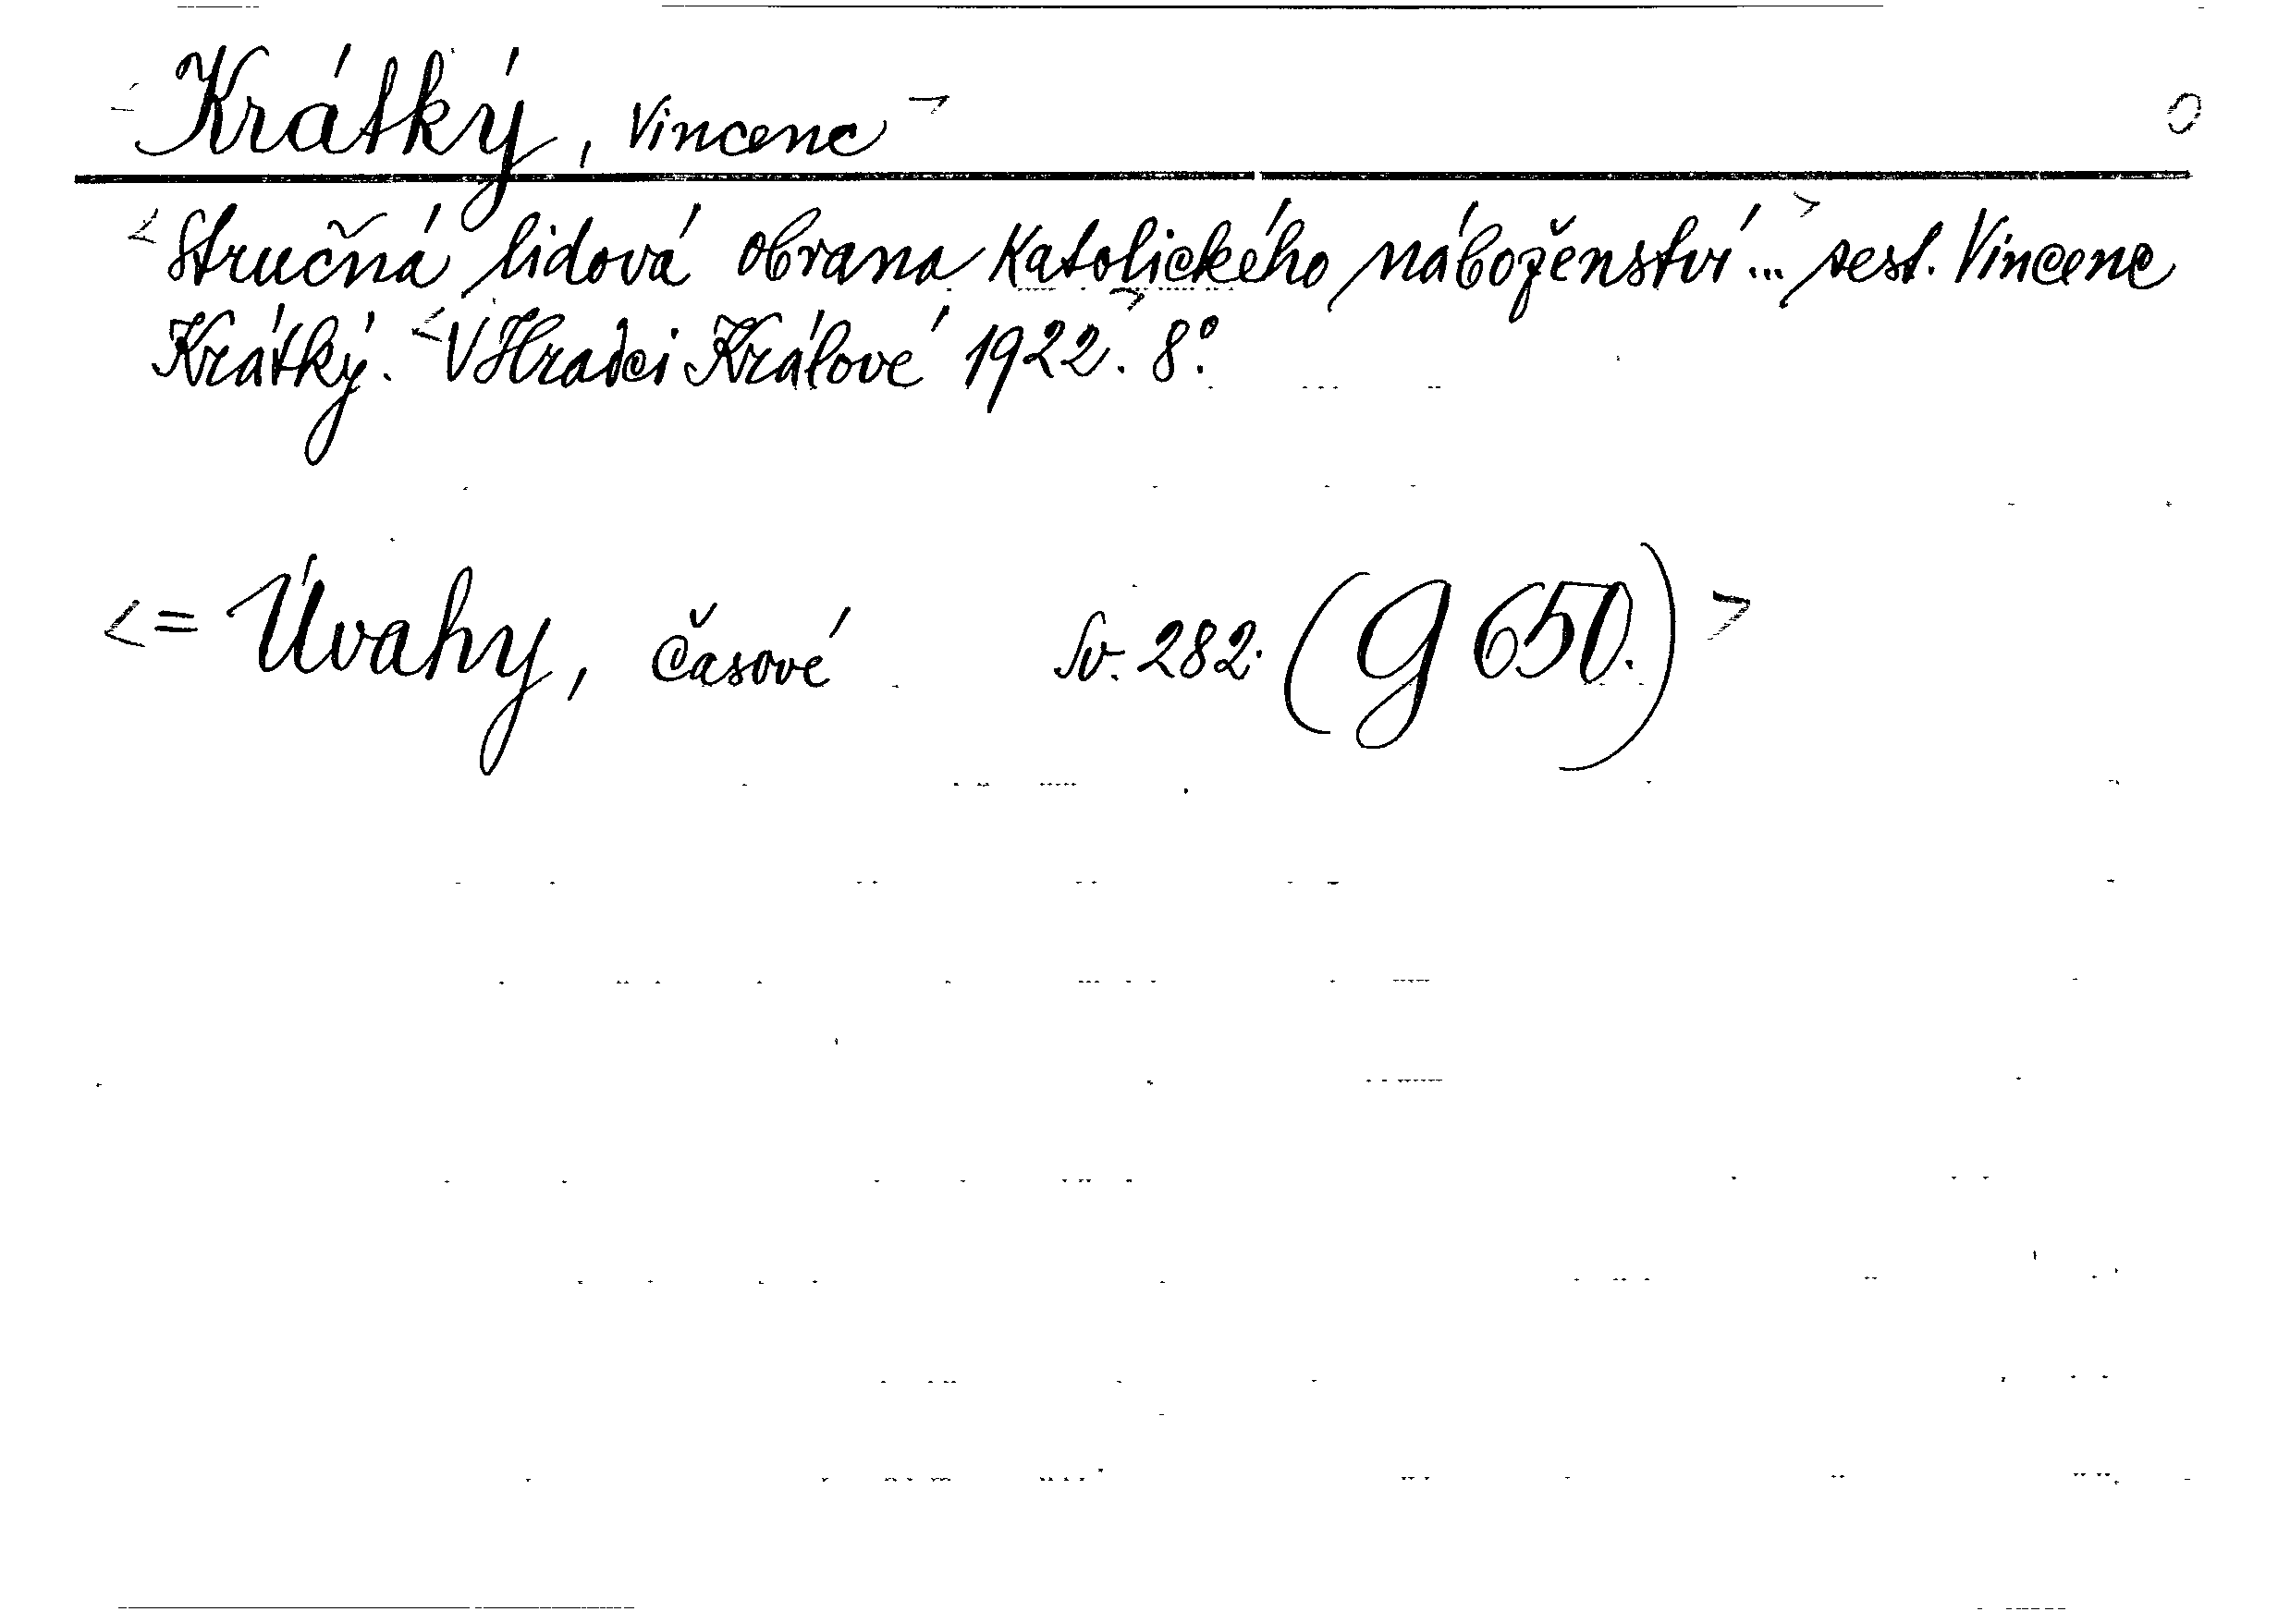 Krátký, Vincenc
<Stručná lidová obrana katolického náboženství...> sest. Vincenc
Krátký. <V Hradci Králové 1922.> 8°.
<= Úvahy, časové Sv. 282. (g 650.)>